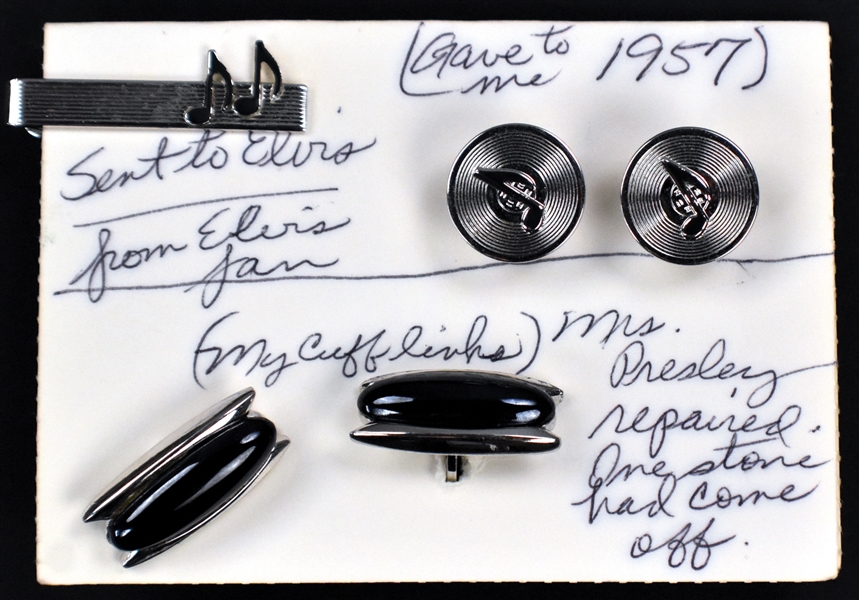 (Gave to me 1957)
Sent to Elvis
from Elvis
fan
(My Cuff links)
Mrs.
Presley
repaired.
One stone
had come
off.